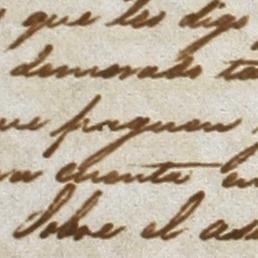 que les digo
demorado ta
ue paguen
cuenta en
Sobre el as